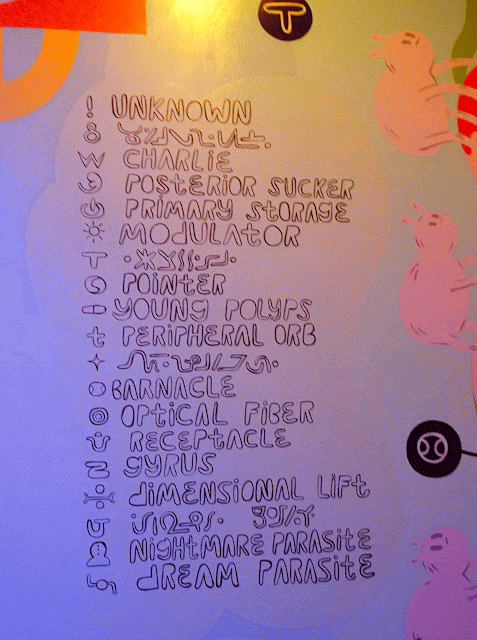 ! UNKNOWN
W CHARLIE
POSTERIOR SUCKER
PRIMARY STORAGE
MODULATOR
T
POINTER
YOUNG POLYPS
t PERIPHERAL ORB
BARNACLE
OPTICAL FIBER
RECEPTACLE
GYRUS
DIMENSIONAL LIFT
NIGHTMARE PARASITE
DREAM PARASITE